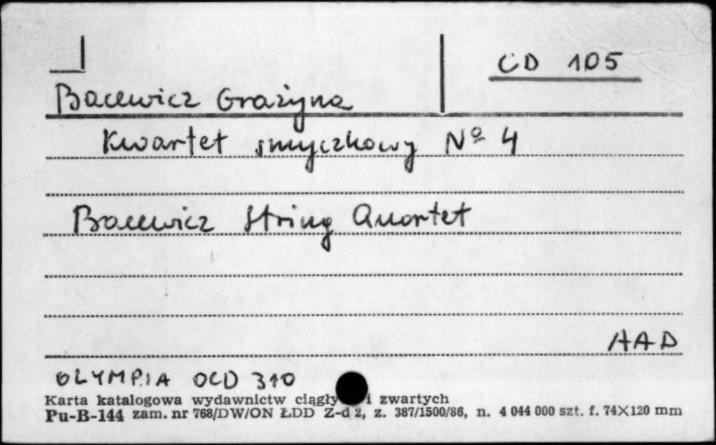 CD 105
Bacewicz Grażyna
Kwartet smyczkowy Nº 4
Bacewicz String Quartet
AAD
OLYMPIA OCD 310
Karta katalogowa wydawnictw ciągły i zwartych
Pu-B-144 zam. nr 768/DW/ON ŁDD Z-d 2, z. 387/1500/86, n. 4 044 000 szt. f. 74×120 mm